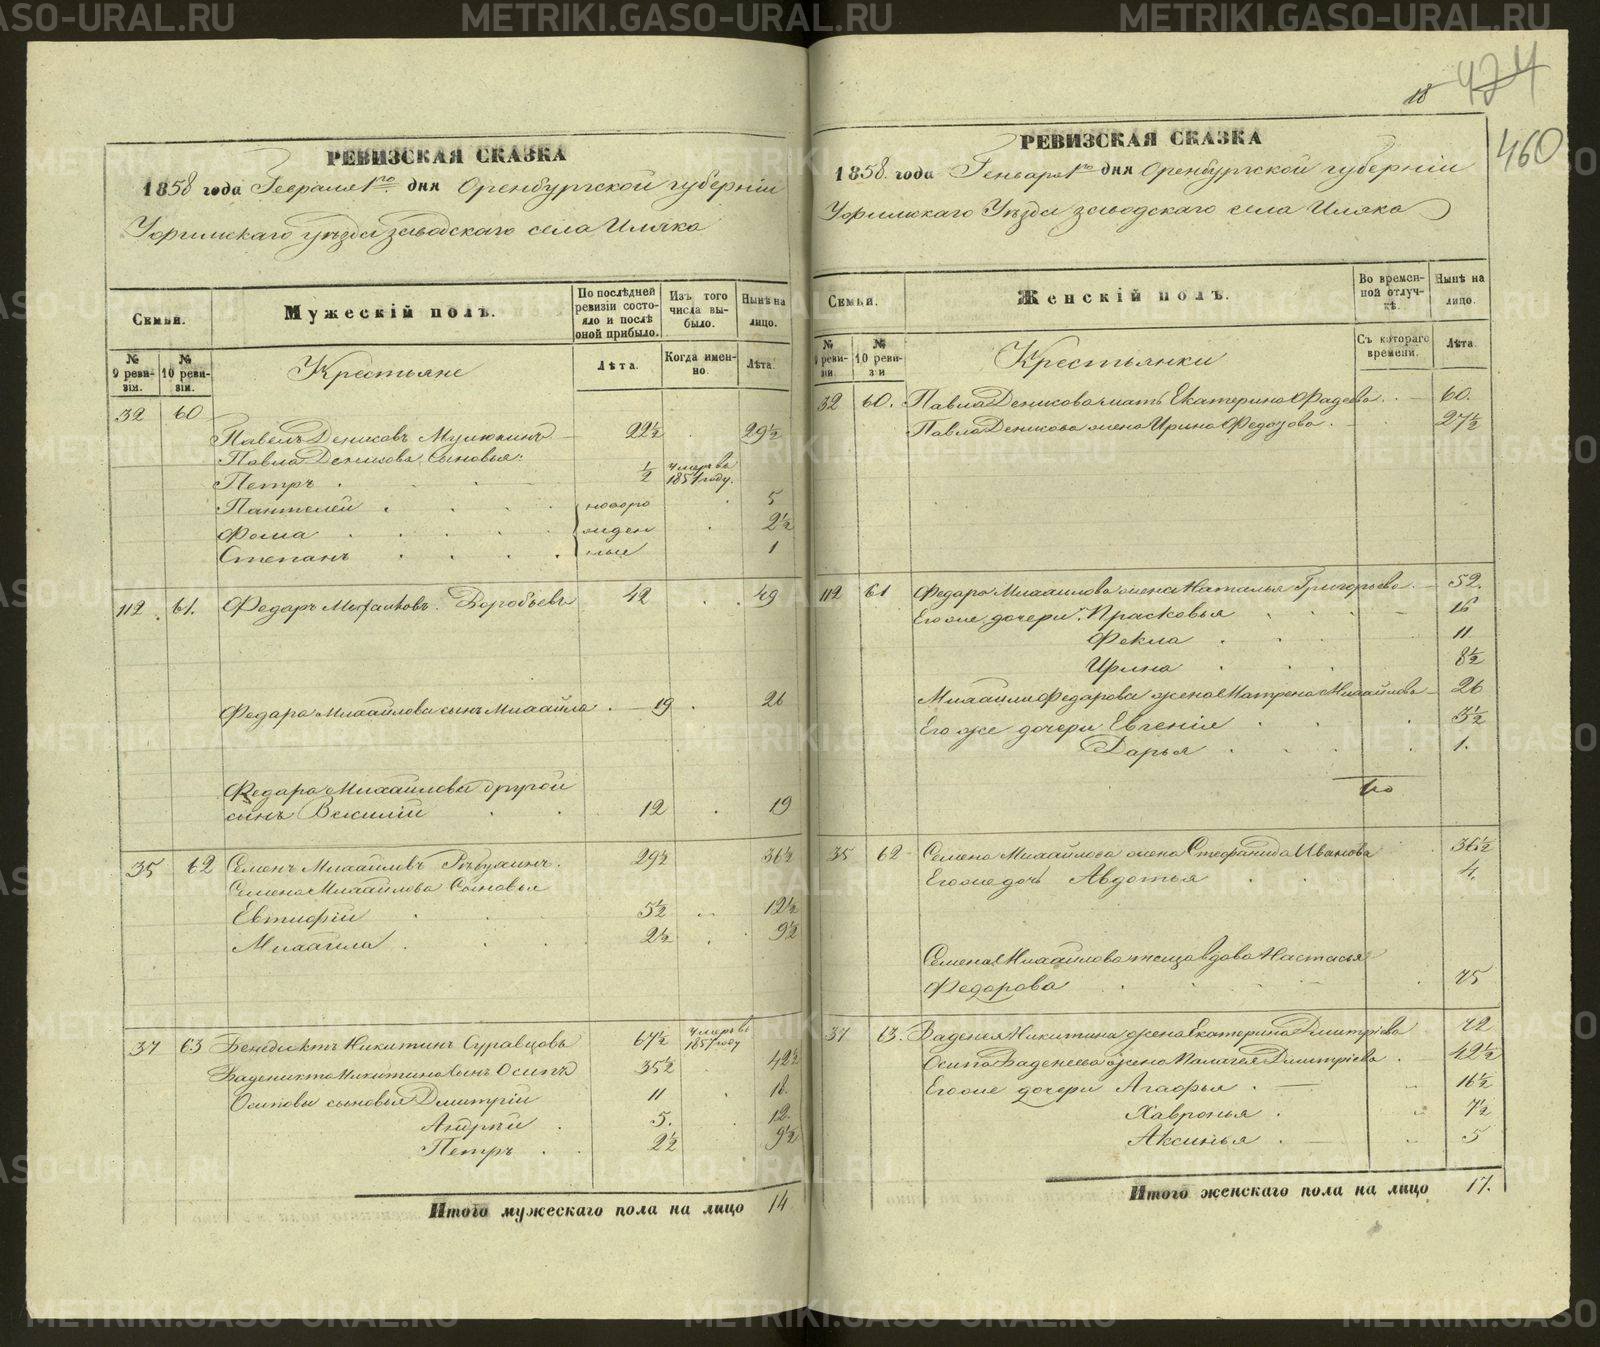 РЕВИЗСКАЯ СКАЗКА
1858 года Февраля 1го дня Оренбургской губернiи
Уфимскаго уѣзда заводскаго села Иляка
Семьи.
Мужескiй полъ.
По послѣдней ревизiи состояло и послѣ оной прибыло.
Изъ того числа выбыло.
Нынѣ на лицо.
№ 9 ревизiи.
№ 10 ревизiи.
Крестьяне
Лѣта.
Когда именно.
Лѣта.
32 60
Павелъ Денисовъ 22½ 29½
Павла Денисова сыновья:
Петръ ½ умеръ въ 1851 году.
Пантелей новоро 5
Фома жден 2½
Степанъ ные 1
112 61. Федаръ Михайловъ Воробьевъ 42 49
Федара Михайлова сынъ Михайла 19 26
Федара Михайлова другой
сынъ Василiй 12 19
35 62 Семенъ Михайловъ 29½ 36½
Семена Михайлова Сыновья
Евтифiй 5½ 12½
Михайла 2½ 9½
37 63 Бенедиктъ Никитинъ Суравцовъ 67½ умеръ въ 1857 году
Никитина сынъ Осипъ 35½ 42½
Осиповы сыновья Дмитрiй 11 18.
Андрѣй 5. 12.
Петръ 2½ 9½
Итого мужескаго пола на лицо 14
18 474
460
РЕВИЗСКАЯ СКАЗКА
1858 года Генваря 1го дня Оренбургской губернiи
Уфимскаго Уѣзда заводскаго села Иляка
Семьи.
Женскiй полъ.
Во временной отлучкѣ.
Нынѣ на лицо.
№ 9 ревизiи
№ 10 ревизiи
Крестьянки
Съ котораго времени.
Лѣта.
32 60. Павла Денисова мать Екатерина Фадеева 60.
Павла Денисова жена Ирина Федотова 27½
112 61 Федара Михайлова жена Наталья Григорьева 52.
Его же дочери: Прасковья 16
Фекла 11
Ирина 8½
Михайлы Федарова жена Матрена Михайлова 26
Его же дочери Евгенiя 3½
Дарья 1.
35 62 Семена Михайлова жена Стефанида Иванова 36½
Его же дочь Авдотья 4.
Семена Михайлова теща вдова Настасья
Федорова 75
37 63. Никитина жена Екатерина Дмитрiева 72
Осипа жена Палагея Дмитрiева 42½
Его же дочери Агафья 16½
Хавронья 7½
Аксинья 5
Итого женскаго пола на лицо 17.
METRIKI.GASO-URAL.RU